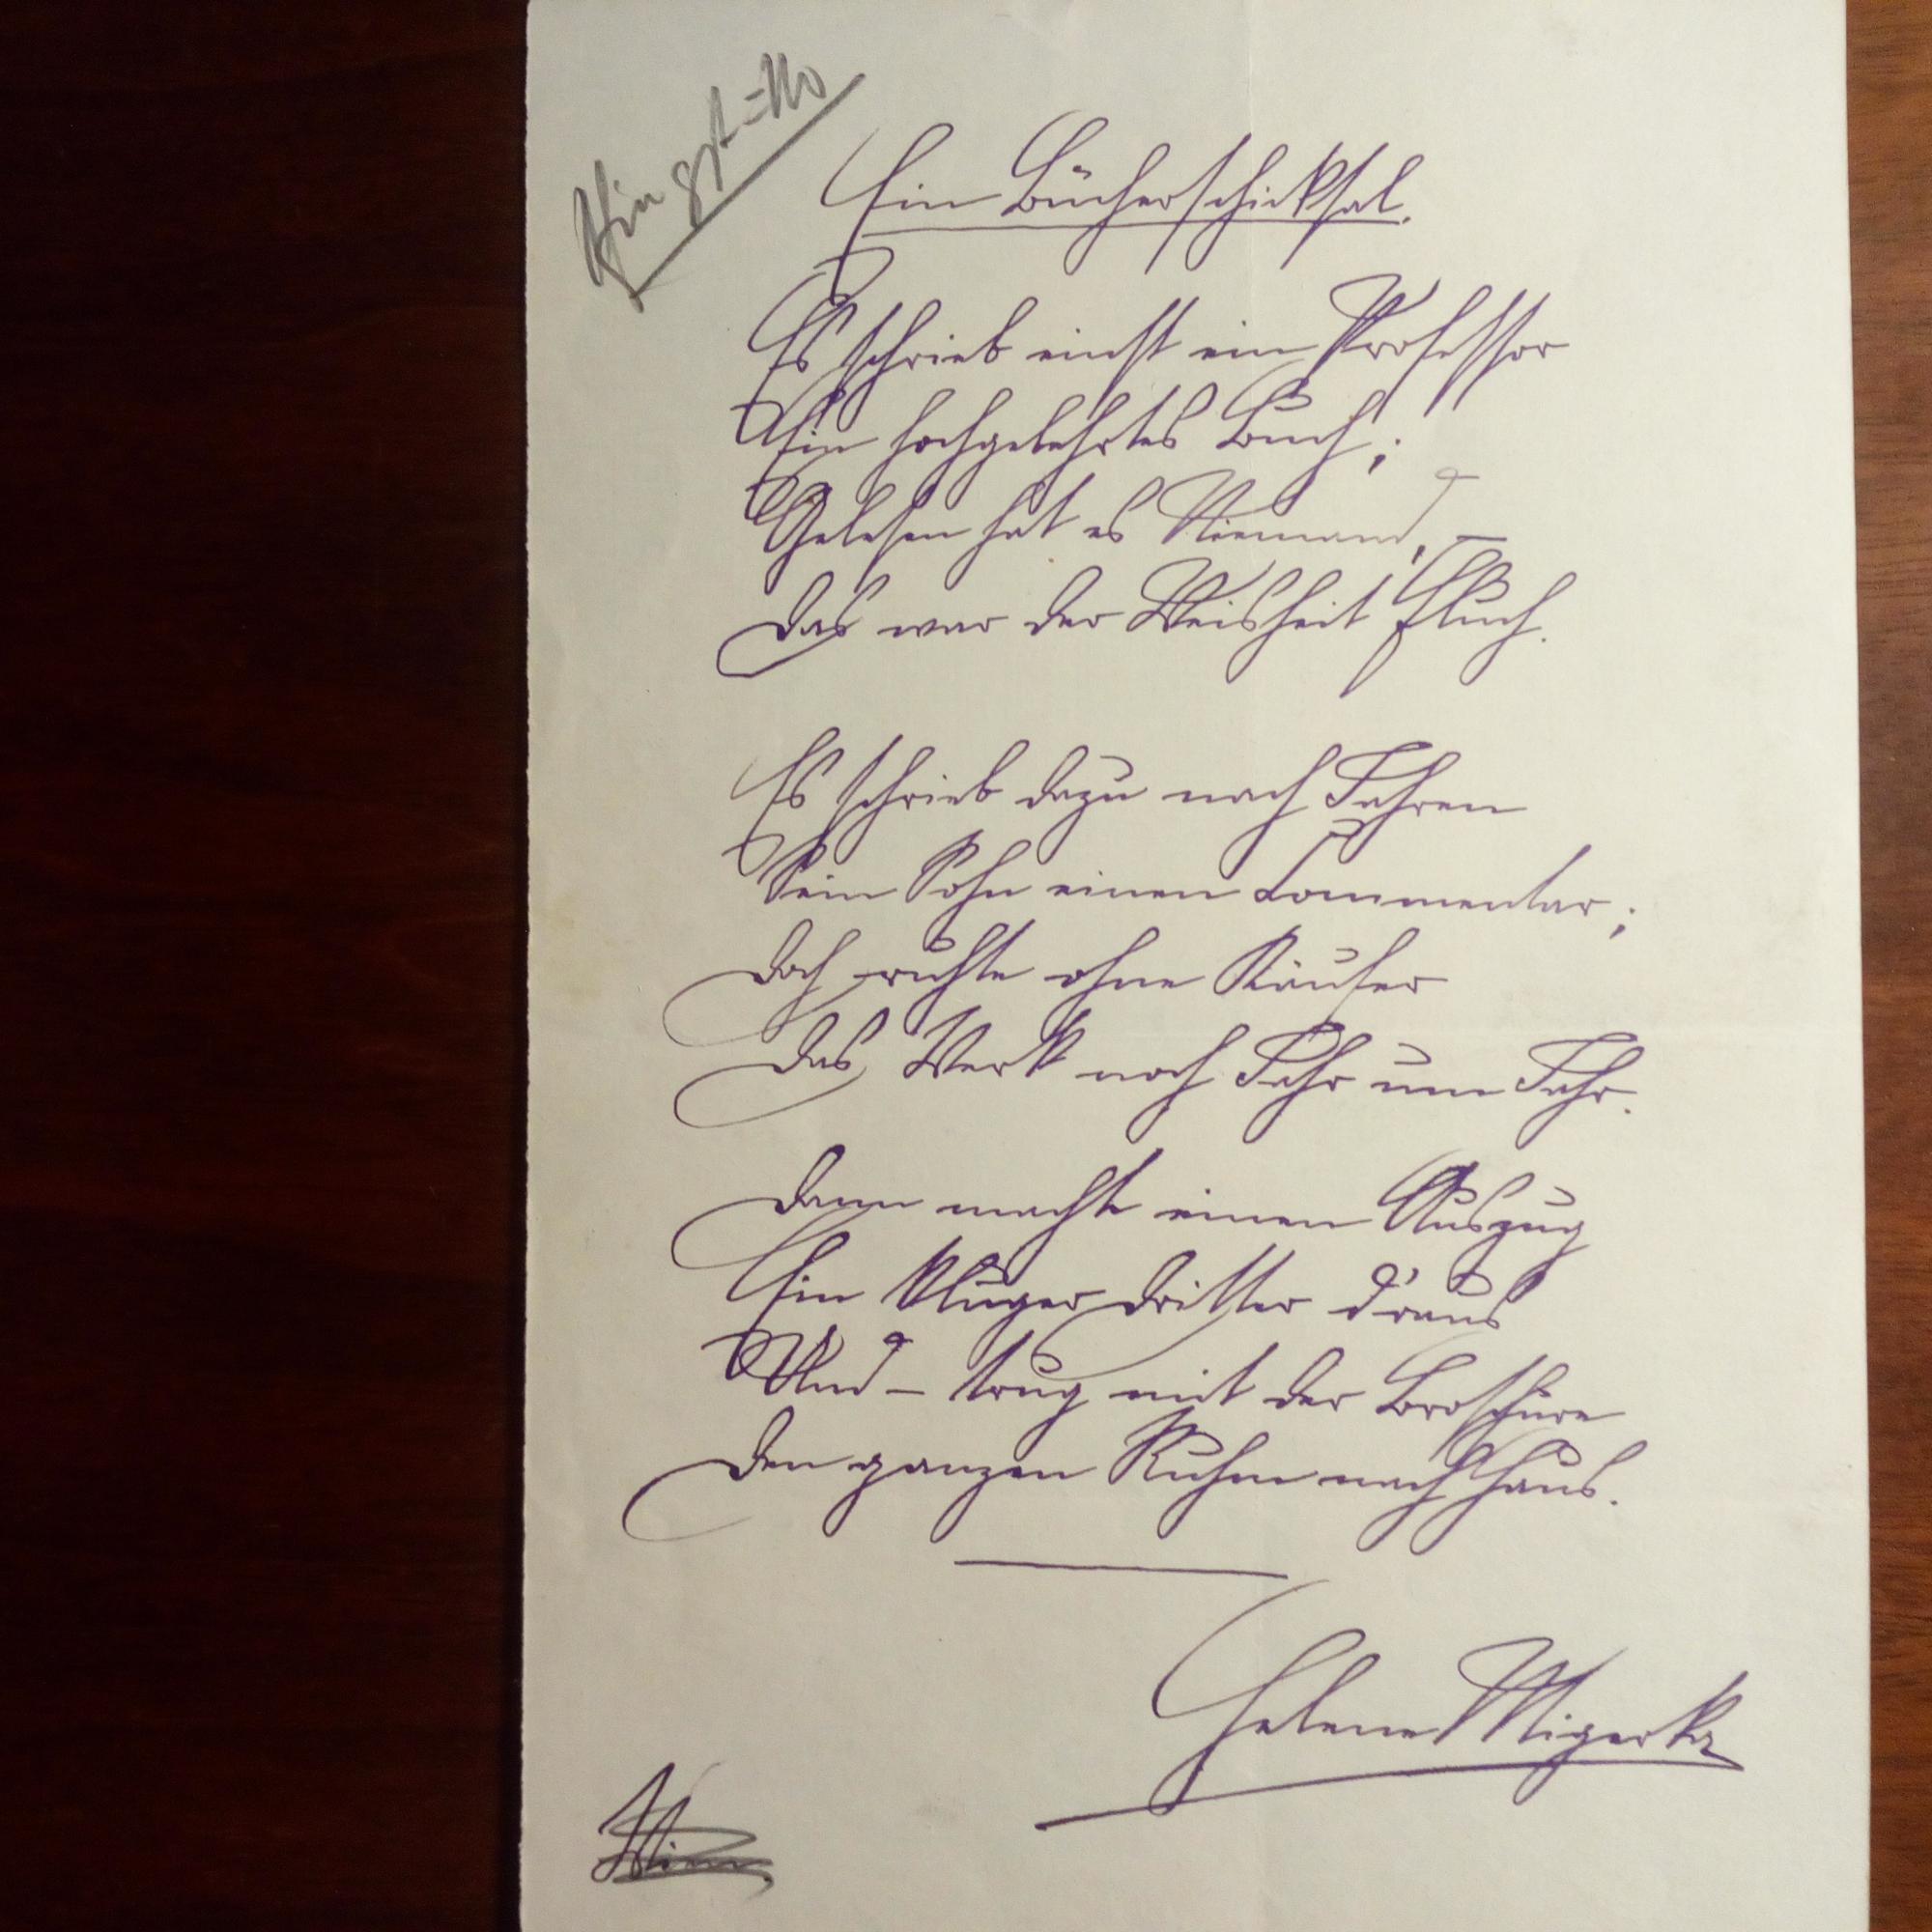 Ein Bücherschicksal.
Es schrieb einst ein Professor
Ein hochgelehrtes Buch;
Gelesen hat es Niemand, —
Das war der Weisheit Fluch.
Es schrieb dazu nach Jahren
Sein Sohn einen Commentar;
Doch ruhte ohne Käufer
Das Werk noch Jahr um Jahr.
Dann macht einen Auszug
Ein kluger Dritter d'raus
Und – trug mit der Broschüre
Den ganzen Ruhm nach Haus.
Helene Migerka